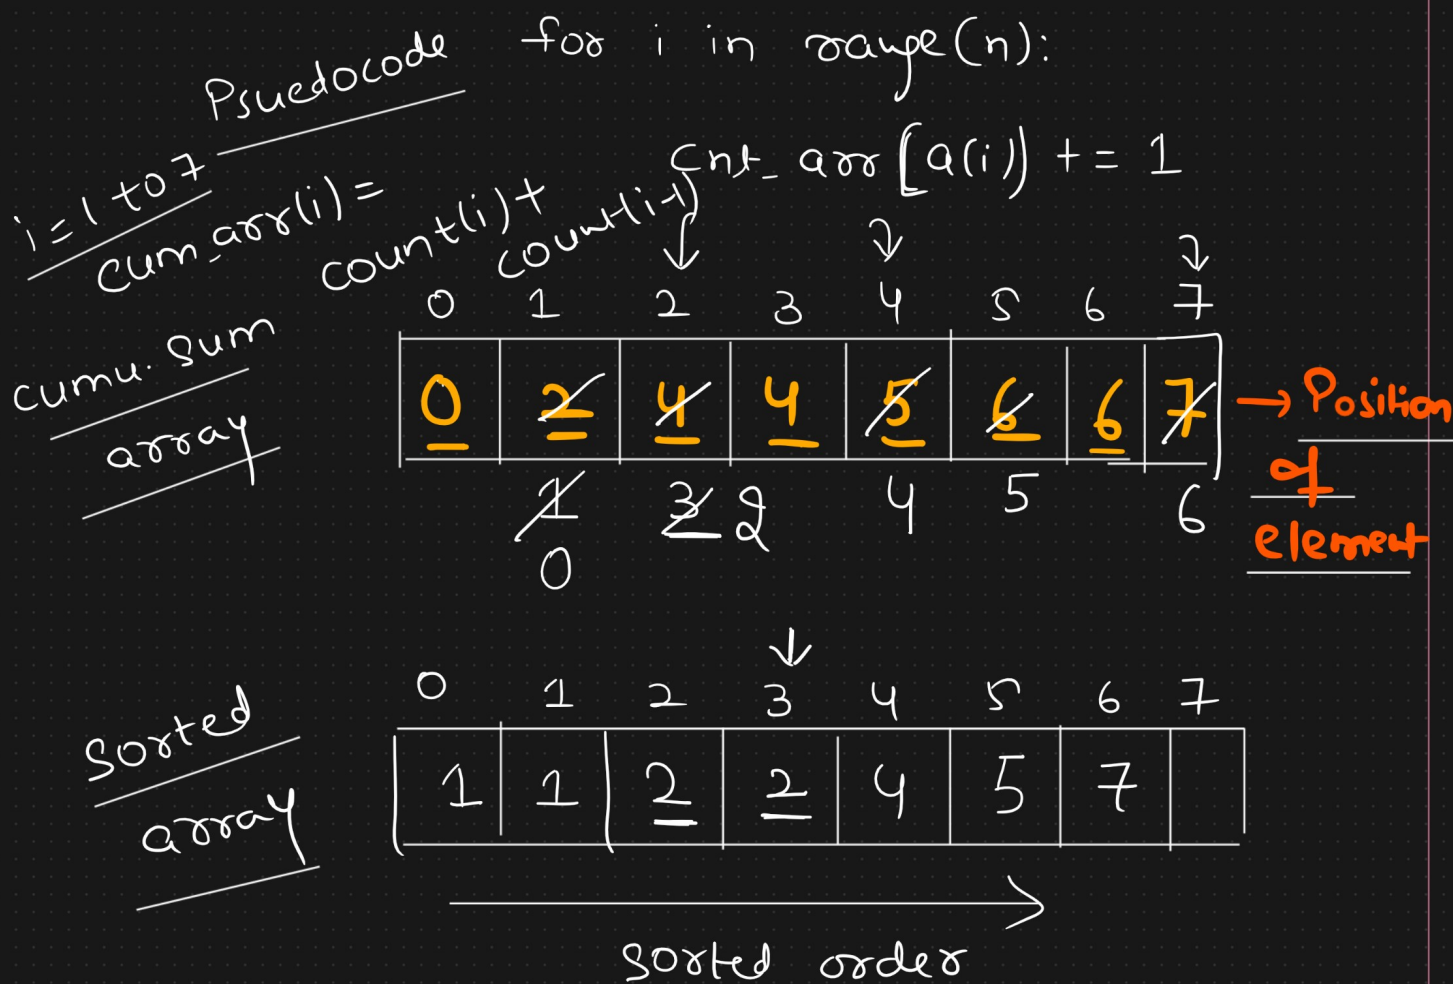 Psuedocode
for i in range(n):
Cnt_arr[a(i)] += 1
i=1 to 7
cum_arr(i)=
count(i)+
count(i-1)
cumu. sum
array
0 1 2 3 4 5 6 7
0 2 4 4 5 6 6 7
→ Position
of
element
1 3 2 4 5 6
0
Sorted
array
0 1 2 3 4 5 6 7
1 1 2 2 4 5 7
sorted order